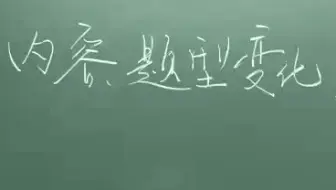 内容、题型变化